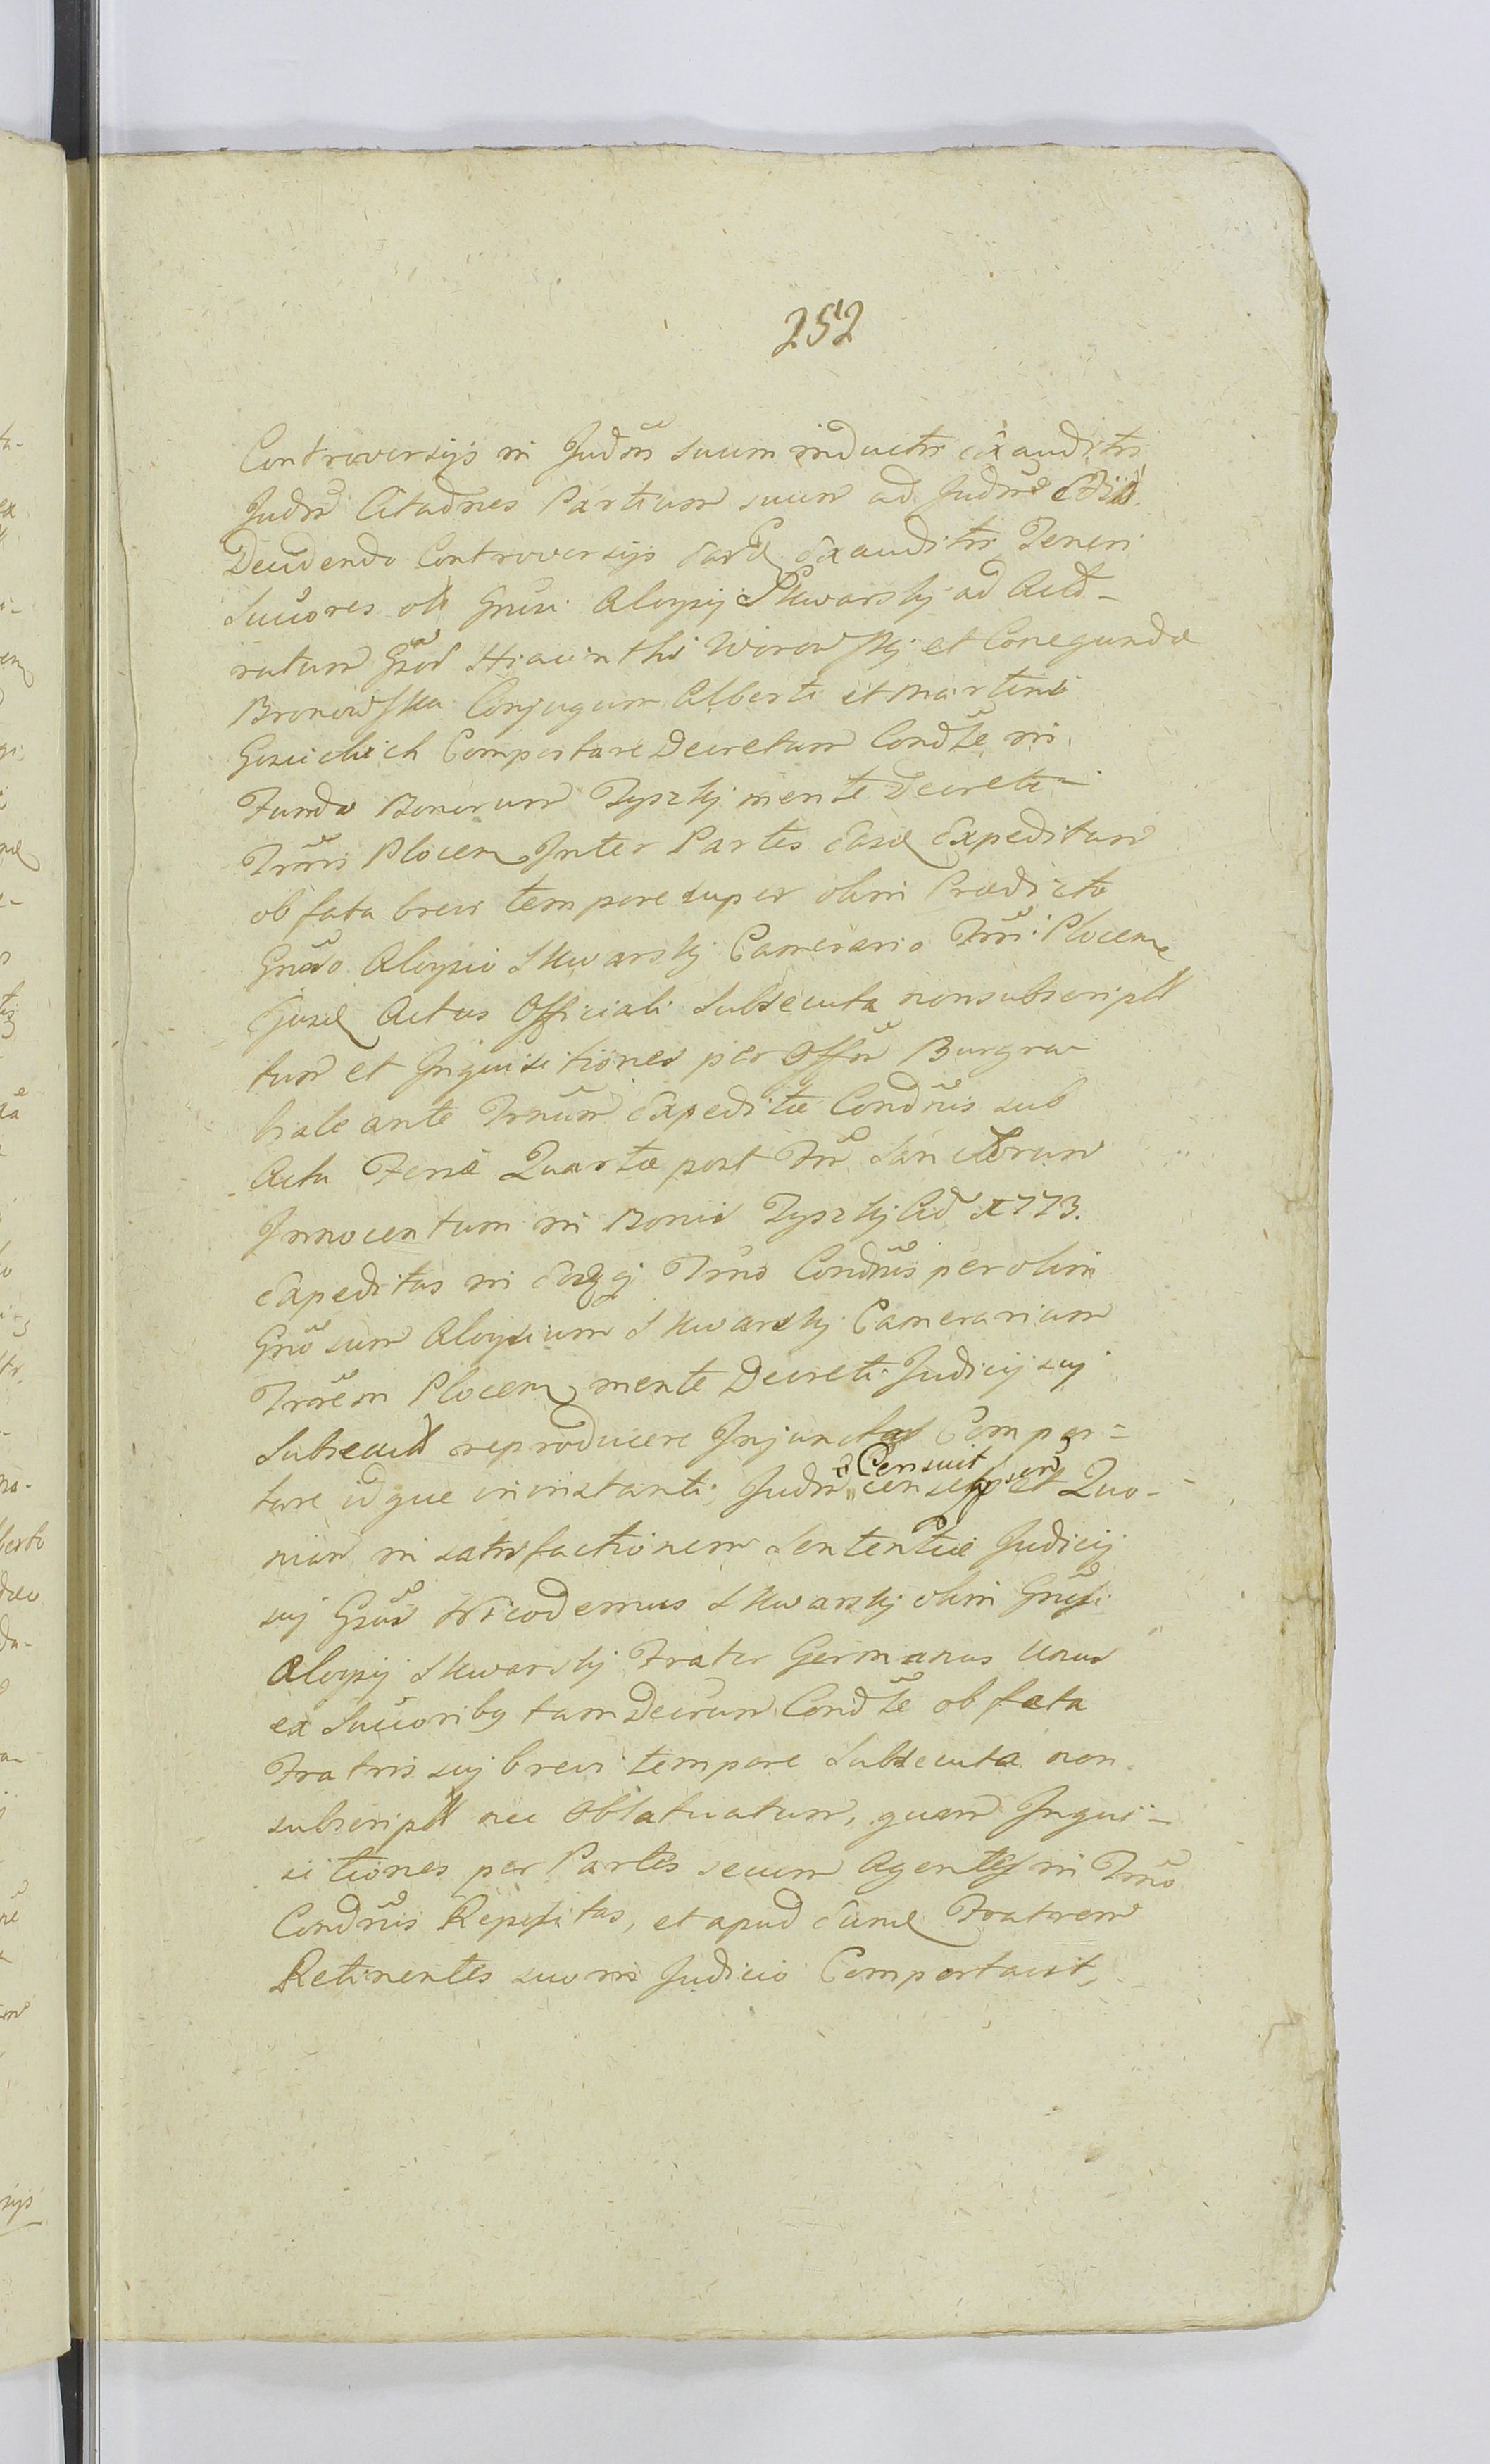 252
Controversijs in Judm̃ suum inductis exauditis
Judm̃ Citatõnes Partium suum ad Judm̃
Decidendo Controversijs Eard Exauditis Teneri
Succores ol Gnõsi Aloysij Skwarskj ad Acto-
ratum Gñod Hiacinthi Worowskj et Conegunda
Bronowska Conjugum Alberti et Martini
Comportare Decretum Condẽ in
Fundo Bonorum Tyszkj mente Decreti
Trm̃is Plocen Inter Partes Easd Expeditum
ob fata brevi tempore super olim Prædicto
Gnõso Aloysio Skwarskj Camerario Trr̃i Plocen
Ejusd Actus Officiali Subsecuta nonsubscrip
tum et Inquisitiones per Offm̃ Burgra
biale ante Trm̃um Expeditæ Condm̃is sub
Actu Feriæ Quartæ post Fm̃ Sanctorum
Innocentum in Bonis Tyszkj Ad 1773.
Expeditas in Trm̃o Condm̃is per olim
Gnõsum Aloysium Skwarskj Camerarium
Trr̃em Plocen mente Decreti Judicij suj
Subsecuti reproducere Injunctas Compor=
Censuit
tare idque in instanti Judm̃ et Quo-
niam in satisfactionem Sententiæ Judicij
suj Gñus Nicodemus Skwarskj olim Gnõsi
Aloysij Skwarskj Frater Germanus Unus
ex Succoribg tam Decrum Condẽ ob fata
Fratris suj brevi tempore Subsecuta non
subscrip nec Oblatuatum, quam Inqui-
sitiones per Partes secum Agentes in Trm̃o
Condm̃is Repositas, et apud Eund Fratrem
Retinentes suo in Judicio Comportavit,